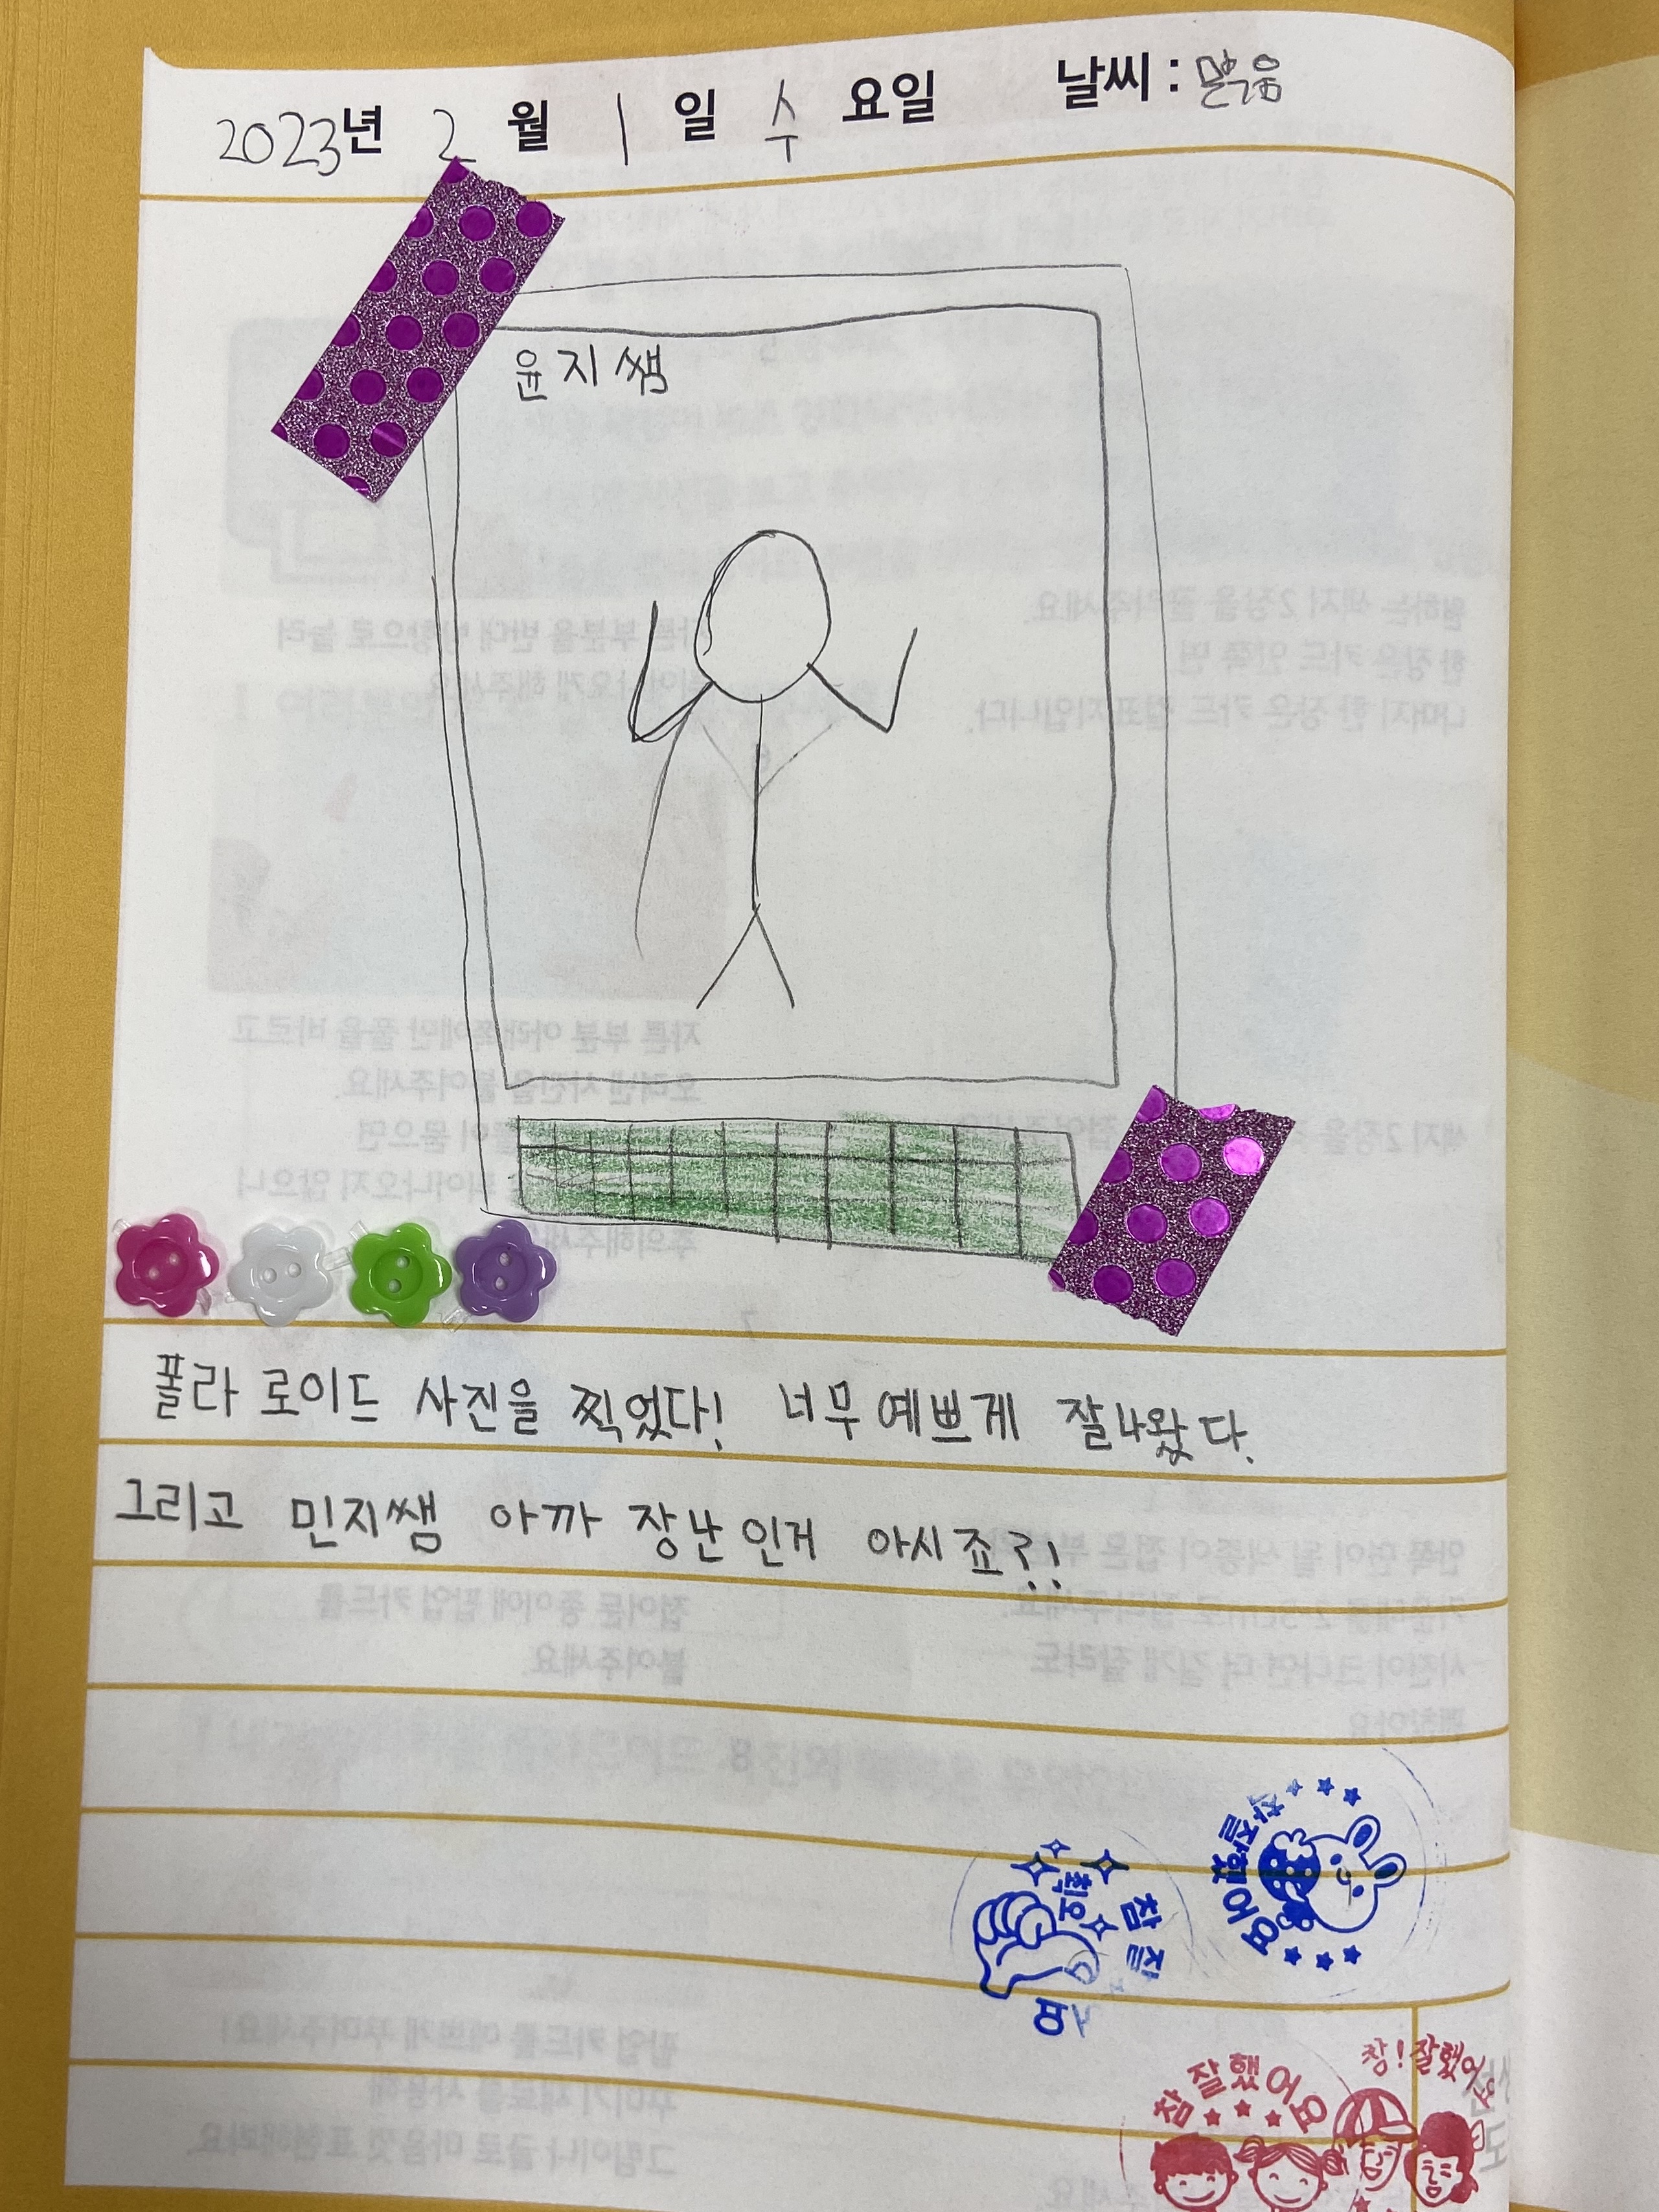 2023년 2월 1일 수요일 날씨 : 맑음
윤지쌤
폴라로이드 사진을 찍었다! 너무 예쁘게 잘나왔다.
그리고 민지쌤 아까 장난인거 아시죠?!
참잘했어요
최고 참 잘
참 잘했어요
참! 잘했어요